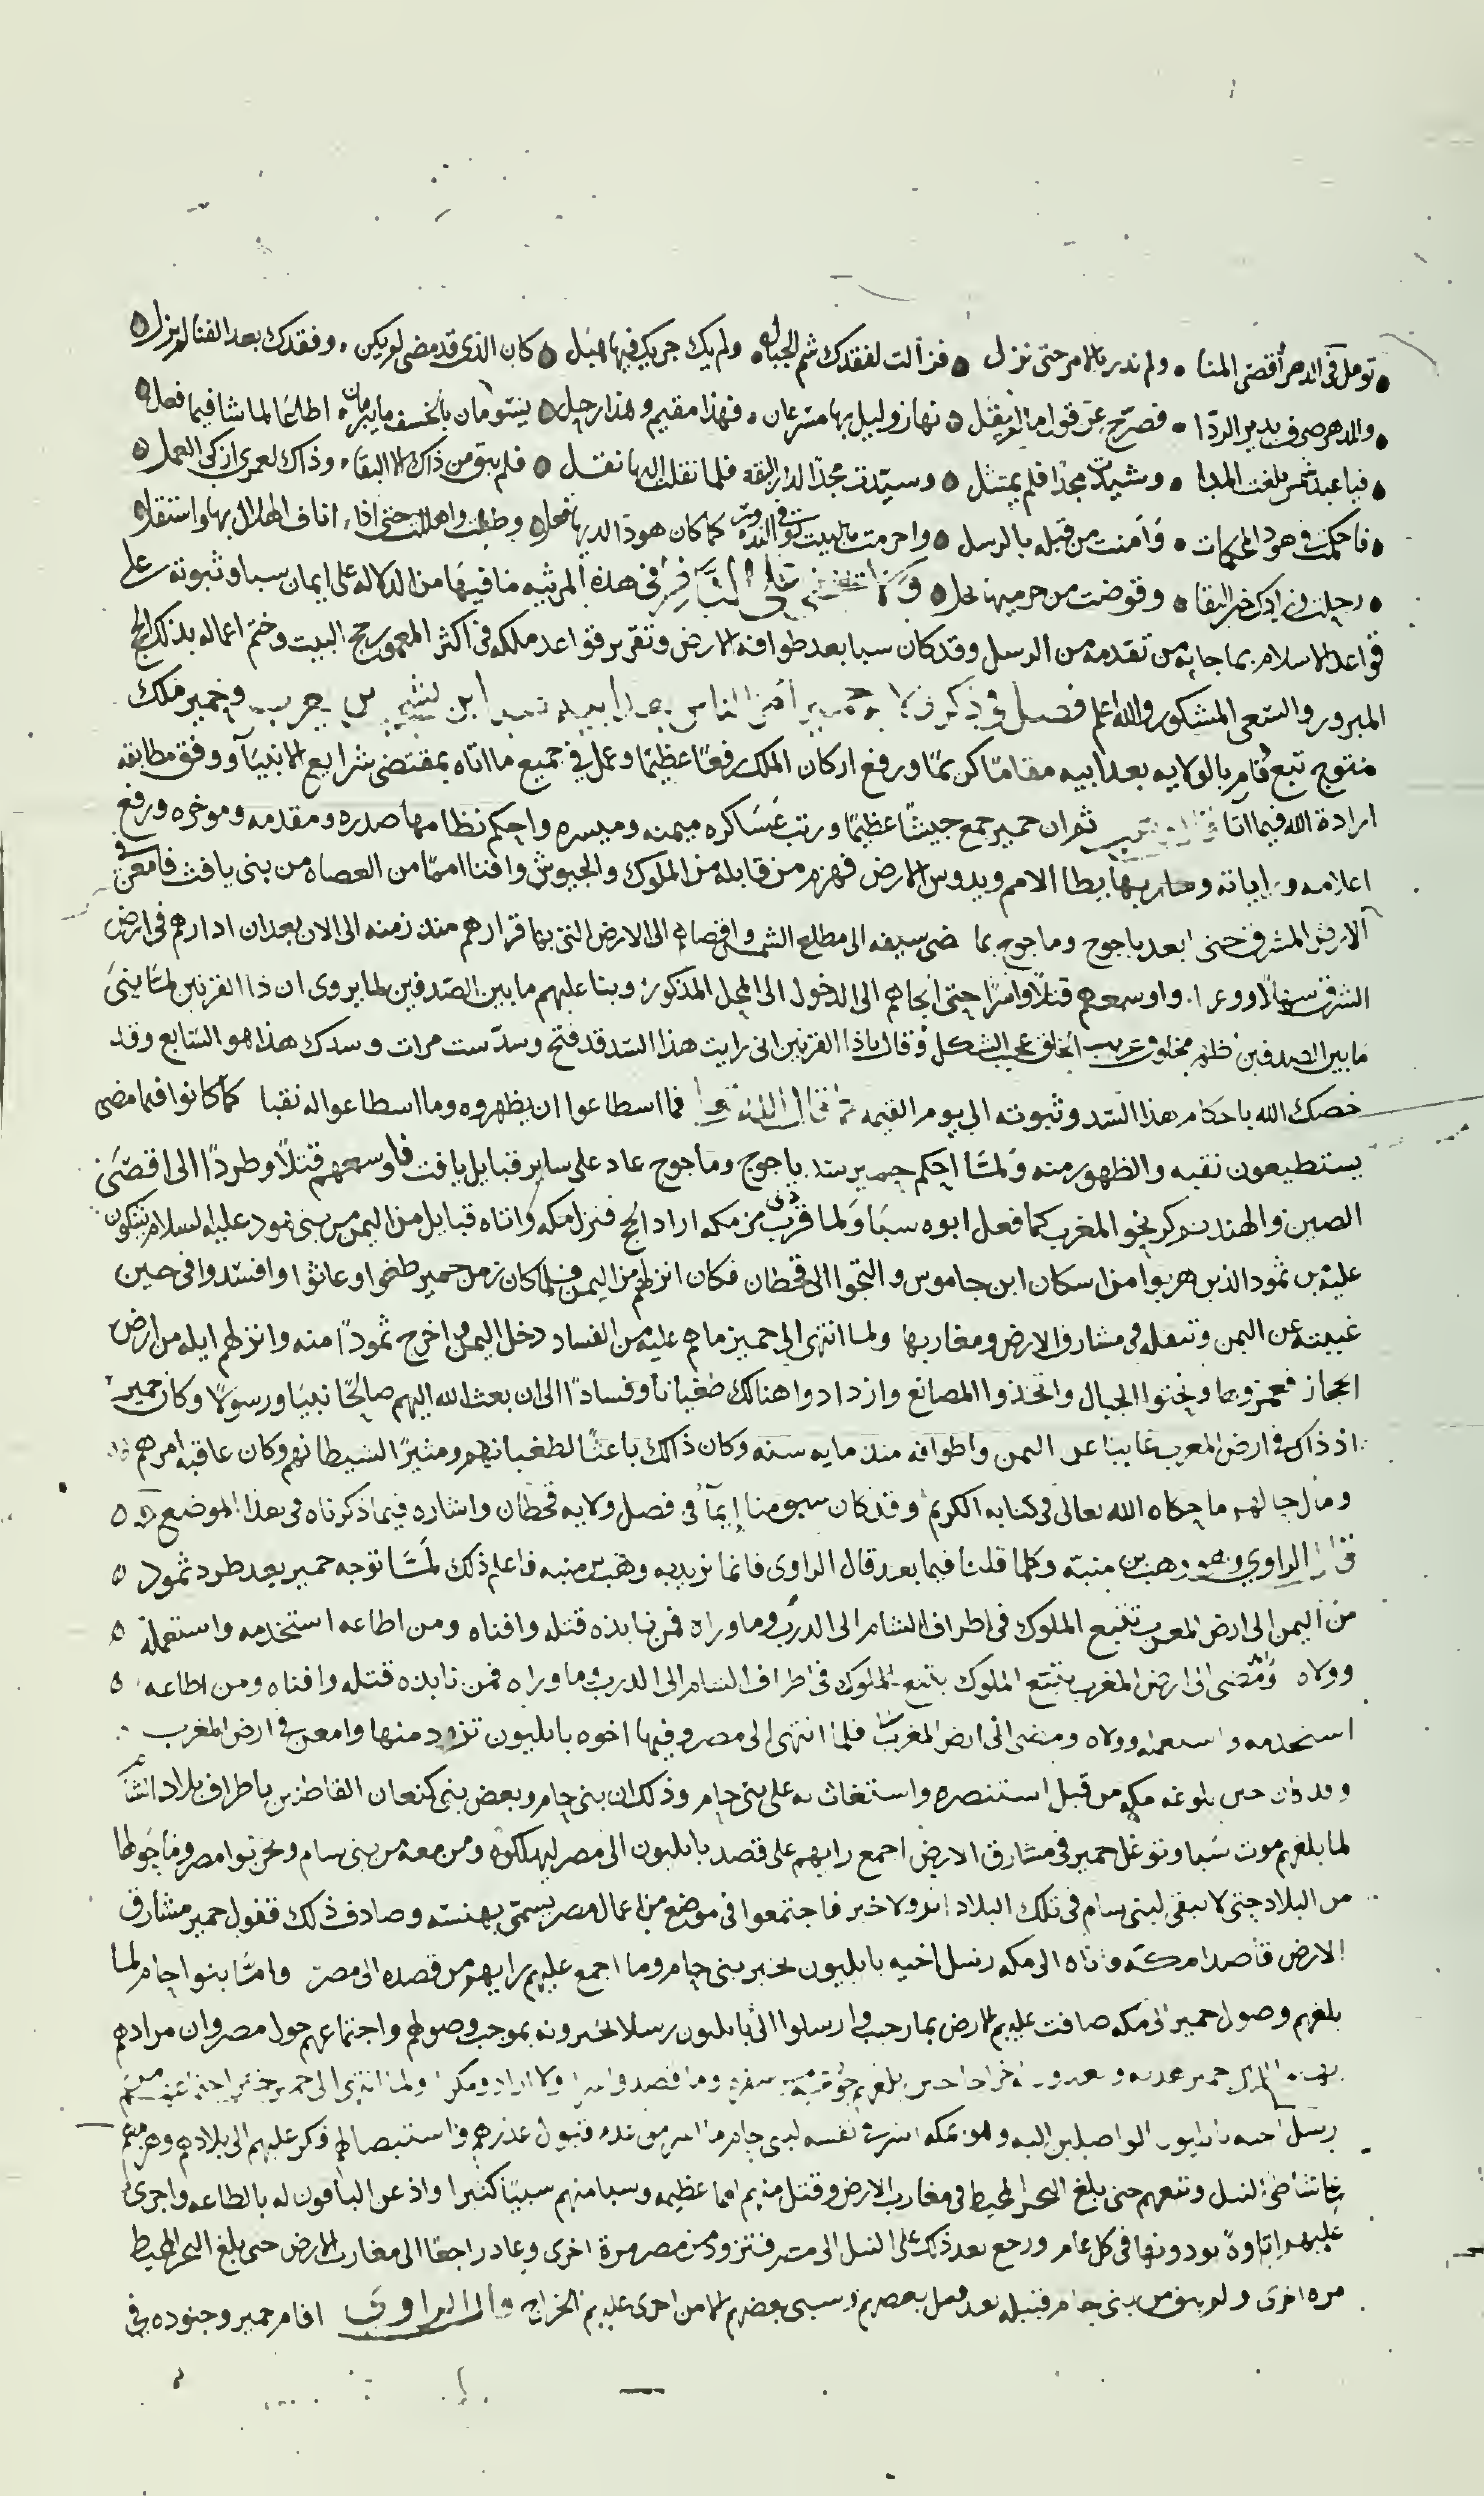 تومل فى الدهر أقصى المنا • ولم ندر بالامر حتى نزل • فزالت لفقدك شم الجبال • ولم يك جريك فيها هبل • كان الذى قد مضى لم يكن • وفقدك بعد الفنا لم يزل
والدهر صرف يدير الردا • فصرح عن قوله نهار وليل بها مسرعان • فهذا مقيم وهذا رحل • يسومان بالخسف ما يبرمان • اطلعا لما شا فيما فعل
فيا عبد شمس بلغت المدا • وشيدت مجدا فلم يمتثل • وسيدت مجدا لدار البقه فلما نقلت اليها نقل • فلم يبق من ذاك الا البقاء • وذاك لعمرى ازكى العمل
فاحكمت هود المحكمات • وآمنت من قبله بالرسل • واحرمت بالبيت كما كان هود لديها فعل • وطفت واهللت حتى اذا • اناف الهلال بها واستقل
رحيلت زادك خير البقا • وقوضت من حرميها فى هذه المرثيه ما فيها من الدلاله على ايمان سبا وثبوته على
قواعد الاسلام بما جا به من تقدمه من الرسل وقد كان سبا بعد طوافه الارض وتقرير قواعد ملكه فى اكثر المعمور حج البيت وختم اعماله بذلك الحج
المبرور والسعى المشكور والله اعلم فصل فى ذكر حمير ملك
متوج تبع قام بالولايه بعد ابيه مقاما كريما ورفع اركان الملك رفعا عظيما وعمل فى جميع ما اتاه بمقتضى شرايع الانبيآ ووفق مطابقه
ارادة الله فيما اتا ثم ان حمير جمع جيشا عظيما ورتب عساكره ميمنه وميسره واحكم نظامها صدره ومقدمه وموخره ورفع
اعلامه وراياته وسار بها يطا الامم ويدوس الارض فهزم من قابله من الملوك والجيوش وافنا امما من العصاه من بنى يافث فامعن فى
الارض المشرق حتى ابعد ياجوج وماجوج بما ضى سيفه الى مطلع الشمس واقصاهم الى الارض التى بها قرارهم منذ زمنه الى الان بعد ان ادارهم فى ارض
الشرق سهلا ووعرا واوسعهم قتلا واسرا حتى الجاهم الى الدخول الى المحل المذكور وبنا عليهم ما بين الصدفين لما يروى ان ذا القرنين لما بنى
ما بين الصدفين ظهر مخلوق غريب الخلق عجيب الشكل وقال ياذا القرنين انى رايت هذا السد قد فتح وسد ست مرات وسدك هذا هو السابع وقد
خصك الله باحكام هذا السد وثبوته الى يوم القيمه فما اسطاعوا ان يظهروه وما اسطاعوا له نقبا كما كانوا فيما مضى
يستطيعون نقبه والظهور منه ولما احكم حمير سد ياجوج وماجوج عاد على ساير قبايل يافث فاوسعهم قتلا وطردا الى اقصى
الصين والهند ثم كر نحو المغرب كما فعل ابوه سبا ولما قرب من مكه اراد الحج فنزل مكه واتاه قبايل من اليمن من بنى هود عليه السلام يشكون
عليه من ثمود الذين هربوا من اسكان ابن جاموس والتجوا الى قحطان فكان انزلهم من اليمن فلما كان زمن حمير طغوا وعاثوا وافسدوا فى حين
غيبته عن اليمن وتنقله فى مشارق الارض ومغاربها ولما انتهى الى حمير ما هم عليه من الفساد دخل اليمن واخرج ثمودا منه وانزلهم ايله من ارض
الحجاز فعمروها ونحتوا الجبال واتخذوا المصانع وازدادوا هنالك طغيانا وفسادا الى ان بعث الله اليهم صالحا نبيا ورسولا وكان حمير
اذ ذاك فى ارض المغرب غايبا عن اليمن واطرافه منذ مايه سنه وكان ذالك باعثا لطغيانهم ومثيرا لشيطانهم وكان عاقبه امرهم
ومآل حالهم ما حكاه الله تعالى فى كتابه الكريم وقد كان سبق منا إيمآء فى فصل ولايه قحطان واشاره فيما ذكرناه فى هذا الموضع
قال الراوي وهو وهب بن منبه وكلما قلنا فيما بعد قال الراوى فانما نريد به وهب بن منبه فاعلم ذلك لما توجه حمير بعد طرد ثمود
من اليمن الى ارض المغرب تتبع الملوك فى اطراف الشام الى الدرب وما وراه فمن نابذه قتله وافناه ومن اطاعه استخدمه واستعمله
وولاه ومضى الى ارض المغرب يتتبع الملوك يتتبع الملوك فى اطراف الشام الى الدرب وما وراه فمن نابذه قتله وافناه ومن اطاعه
استخدمه واستعمله وولاه ومضى الى ارض المغرب فلما انتهى الى مصر وفيها اخوه بابليون تزود منها وامعن فى ارض المغرب
وقد كان حين بلوغه مكه من قبل استنصره واستغاث به على بنى حام وذلك ان بنى حام وبعض بنى كنعان القاطنين باطراف بلاد الشام
لما بلغهم موت سبا وتوغل حمير فى مشارق الارض اجمع رايهم على قصد بابليون الى مصر ليهلكوه ومن معه من بنى سام ويخربوا مصر وما حولها
من البلاد حتى لا يبقى لبنى سام فى تلك البلاد اثر ولا خبر فاجتمعوا فى موضع من اعمال مصر يسمى بهنسه وصادف ذلك قفول حمير مشارق
الارض قاصدا مكه واتاه الى مكه رسل اخيه بابليون بخبر بنى حام وما اجمع عليهم رايهم من قصده الى مصر واما بنوا حام لما
بلغهم وصول حمير الى مكه ضاقت عليهم الارض بما رحبت وارسلوا الى بابليون رسلا يخبرونه بموجب وصولهم واجتماعهم حول مصر وان مرادهم
ولما انتهى الى حمير خبر
رسل اخيه بابليون الواصلين اليه وهو بمكه قبول عذرهم واستيصالهم فكر عليهم الى بلادهم وهزمهم
شاطى النيل وتتبعهم حتى بلغ البحر المحيط فى مغارب الارض وقتل منهم امما عظيمه وسبا منهم سبيا كثيرا واذعن الباقون له بالطاعه واجرى
عليهم إتاوة يودونها فى كل عام ورجع بعد ذلك على النيل الى مصر فتزود من مصر مرة اخرى وعاد راجعا الى مغارب الارض حتى بلغ البحر المحيط
مره اخرى ولم يبق من بنى حام قبيله بعد قتل بعضهم وسبى بعضهم الا من اجرى عليهم الخراج قال الراوى اقام حمير وجنوده فى